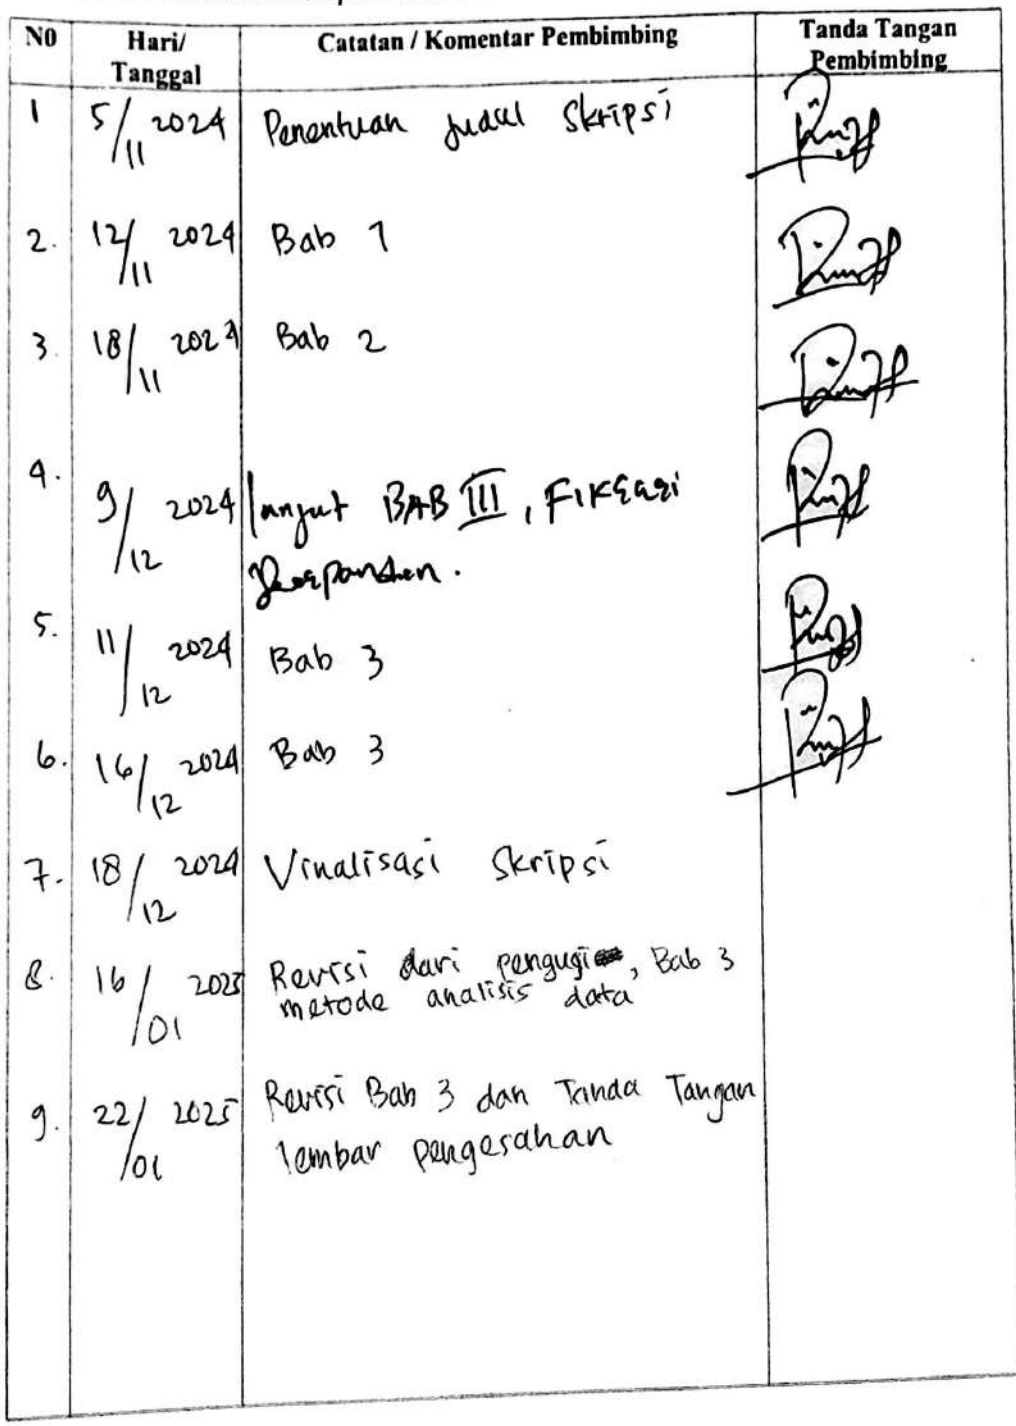 N0 Hari/ Tanggal Catatan / Komentar Pembimbing Tanda Tangan Pembimbing
1 5/11 2024 Penentuan judul Skripsi
2. 12/11 2024 Bab 1
3. 18/11 2024 Bab 2
4. 9/12 2024 lanjut BAB III,
5. 11/12 2024 Bab 3
6. 16/12 2024 Bab 3
7. 18/12 2024 Vinalisasi Skripsi
8. 16/01 2025 Revisi dari penguji, Bab 3
metode analisis data
9. 22/01 2025 Revisi Bab 3 dan Tanda Tangan
lembar pengesahan